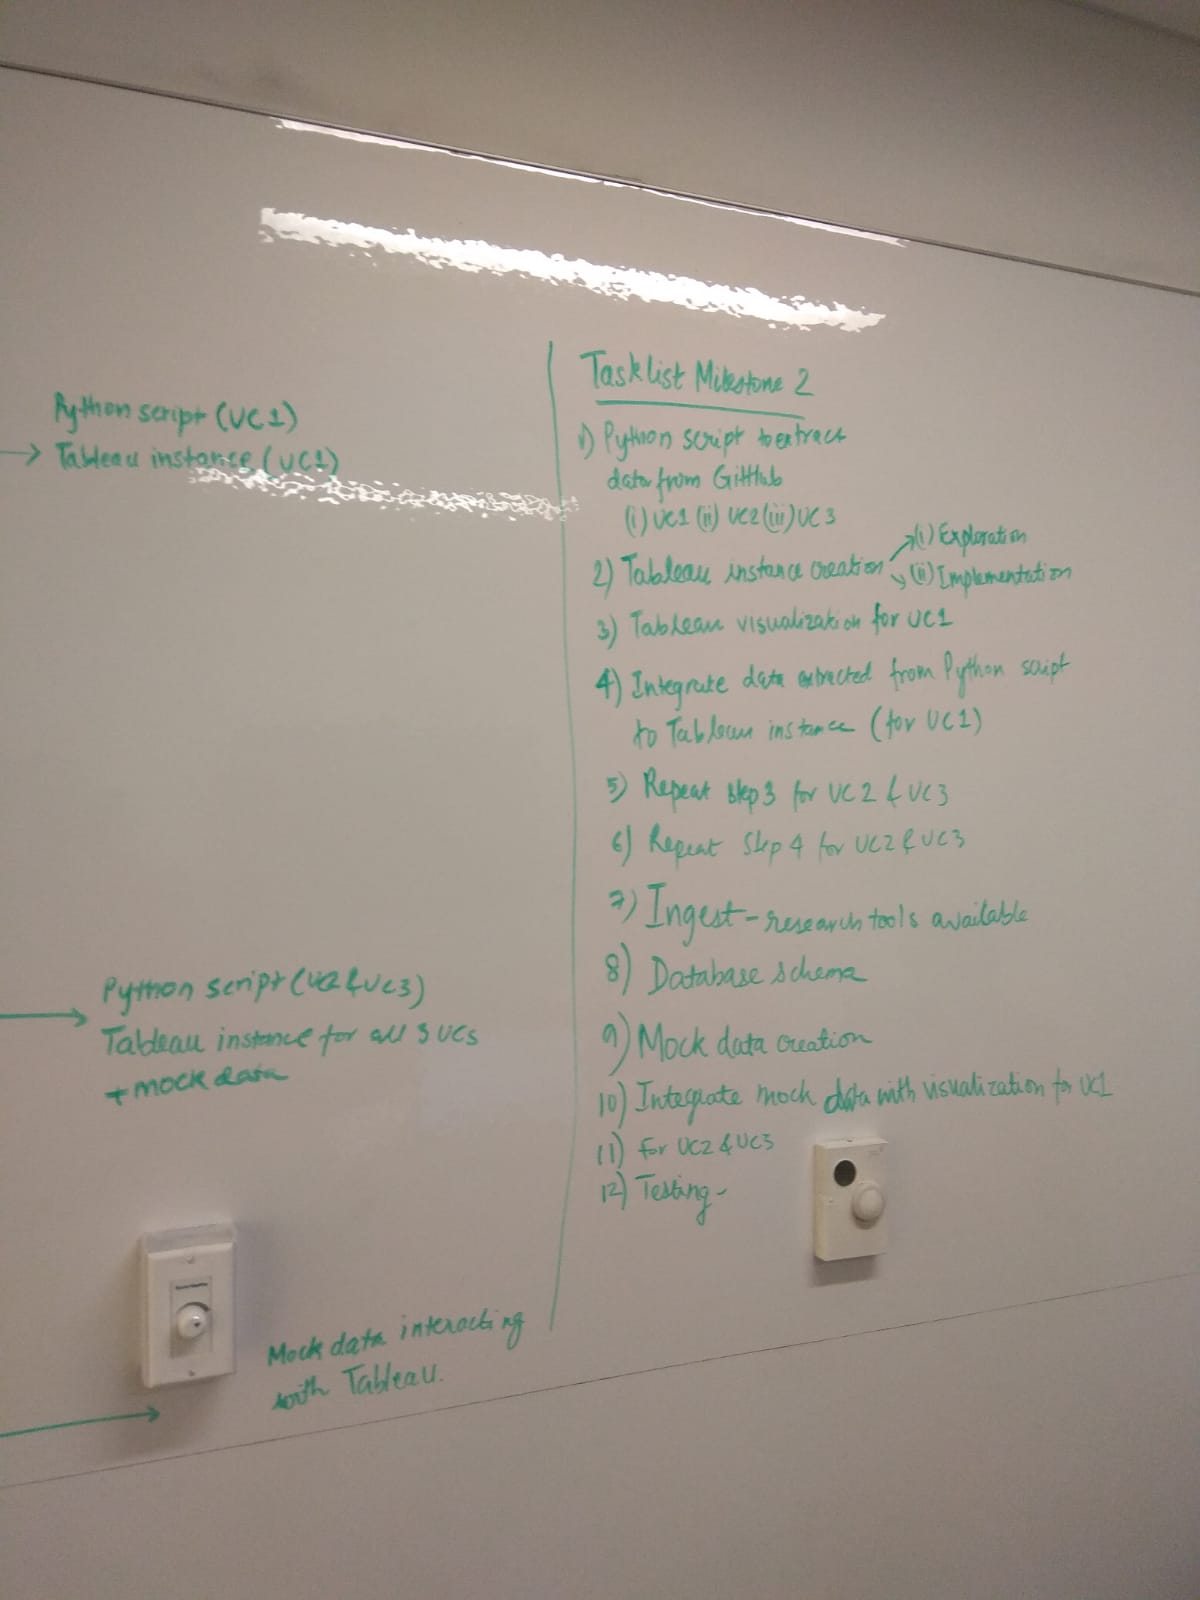 Python script (UC1)
→ Tableau instance (UC1)
Python script (UC2 & UC3)
Tableau instance for all 3 UCs
+ mock data
Mock data interacting
with Tableau.
Tasklist Milestone 2
1) Python script to extract
data from GitHub
(i) UC1 (ii) UC2 (iii) UC3
2) Tableau instance creation
(i) Exploration
(ii) Implementation
3) Tableau visualization for UC1
4) Integrate data extracted from Python script
to Tableau instance (for UC1)
5) Repeat step 3 for UC2 & UC3
6) Repeat Step 4 for UC2 & UC3
7) Ingest - research tools available
8) Database schema
9) Mock data creation
10) Integrate mock data with visualization for UC1
11) for UC2 & UC3
12) Testing -